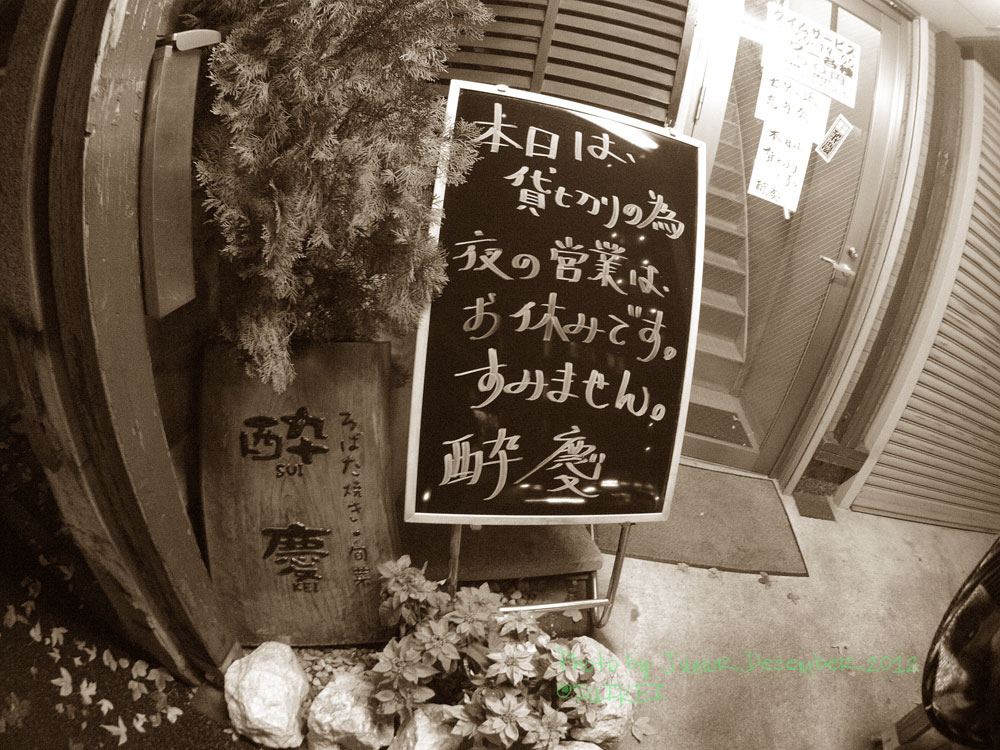 本日は、
貸切りの為
夜の営業は、
お休みです。
すみません。
酔慶
酔
SUI
慶
KEI
ろばた焼き・旬菜
タイムサービス
Photo by Junor December 2012